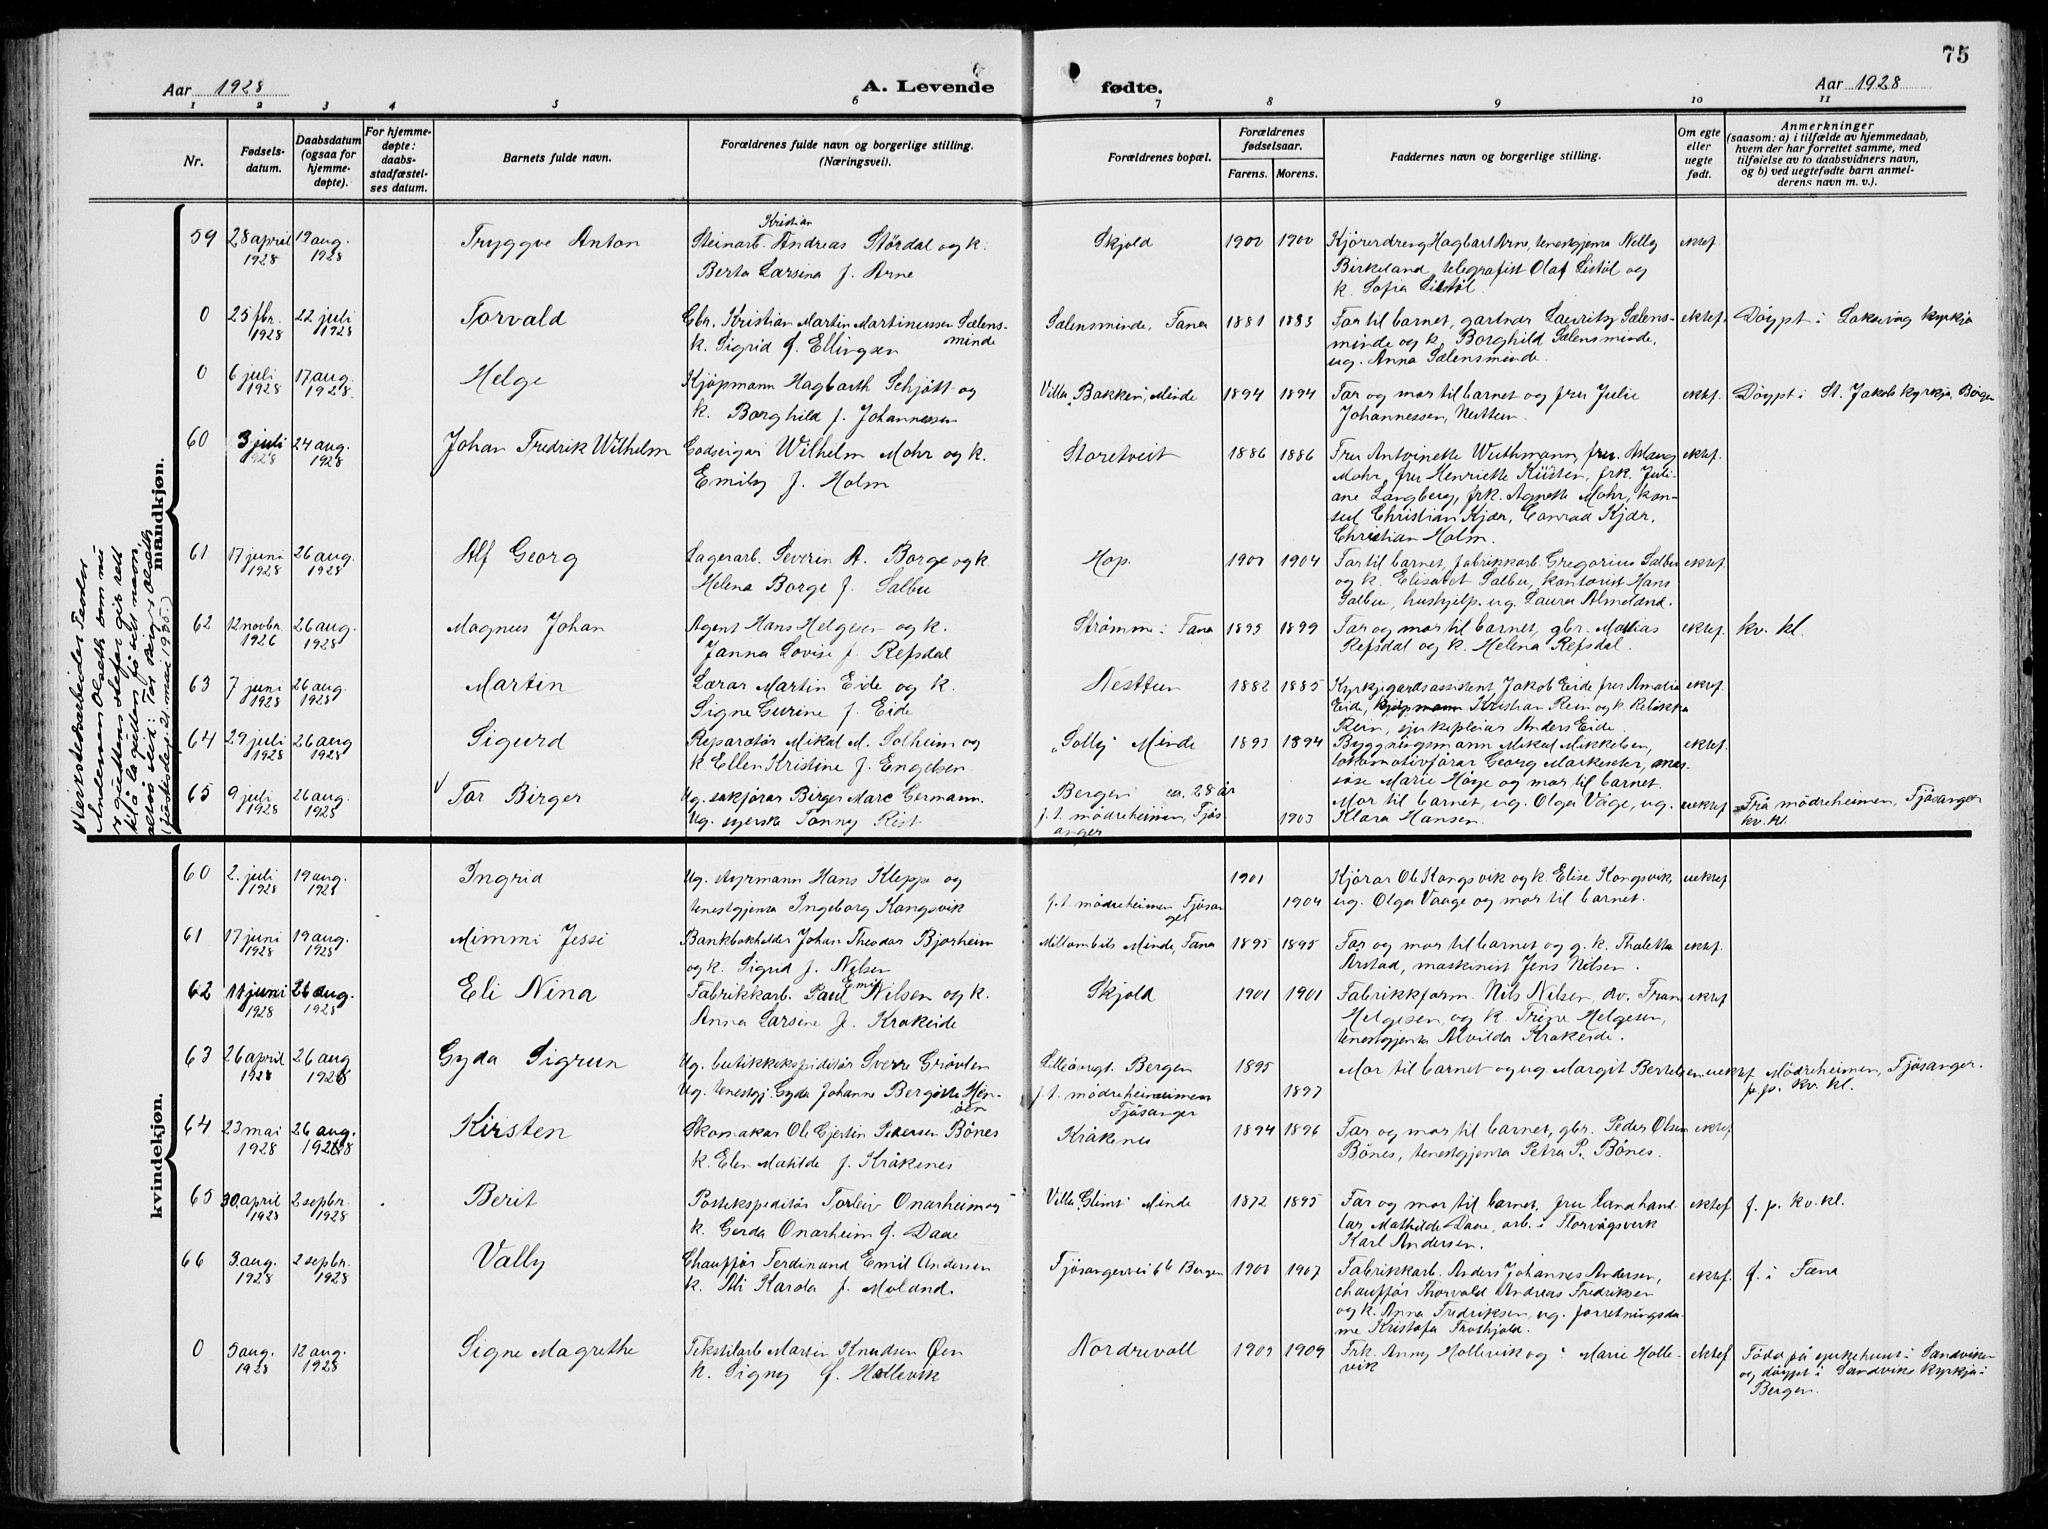 75
Aar 1928
A. Levende
fødte.
Aar 1928
1 2 3 4 5 6 7 8 9 10 11
Nr.
Fødsels-
datum.
Daabsdatum
(ogsaa for
hjemme-
døpte).
For hjemme-
døpte:
daabs-
stadfæstel-
ses datum.
Barnets fulde navn.
Forældrenes fulde navn og borgerlige stilling.
(Næringsvei).
Forældrenes bopæl.
Forældrenes
fødselsaar.
Farens. Morens.
Faddernes navn og borgerlige stilling.
Om egte
eller
uegte
født.
Anmerkninger
(saasom: a) i tilfælde av hjemmedaab,
hvem der har forrettet samme, med
tilføielse av to daabsvidners navn,
og b) ved uegtefødte barn anmel-
derens navn m. v.).
mandkjøn.
59 28 april 1928 19 aug. 1928 Tryggve Anton
Kristian
Steinarb. Andreas Størdal og k.
Berta Larsina f. Arne
Skjold 1900 1900
Kjøredreng Hagbart Arne, tenestgjenta Nelly
Birkeland, telegrafist Olaf Listøl og
k. Sofia Listøl.
ektef.
0 25 fbr. 1928 22 juli 1928 Torvald
Gbr. Kristian Martin Martinussen Sælens-
minde
k. Sigrid f. Ellingsen
Sælensminde, Fana 1881 1883
Far til barnet, gartnar Lauritz Sælens-
minde og k. Borghild Sælensminde,
ug. Anna Sælensminde.
ektef. Döypt i Laksevåg kyrkja
0 6 juli 1928 17 aug. 1928. Helge
Kjøpmann Hagbarth Schjött og
k. Borghild f. Johannessen
Villa „Bakken", Minde 1894 1894
Far og mor til barnet og fru Julie
Johannessen, Nesttun.
ektef. Döypt i St. Jakob kyrkja, Bergen
60 3 juli 1928 24 aug. 1928 Johan Fredrik Wilhelm
Godseigar Wilhelm Mohr og k.
Emily f. Holm
Storetveit 1886 1886
Fru Antoinette Wuthmann, fru Aslaug
Mohr, fru Henriette Küsten, frk. Juli-
ane Langberg, frk. Agnete Mohr, kon-
sul Christian Kjær, Conrad Kjær,
Christian Holm.
ektef.
61 17 juni 1928 26 aug. 1928 Alf Georg
Lagerarb. Severin A. Borge og k.
Helena Borge f. Salbu
Hop. 1900 1904
Far til barnet, fabrikkarb. Gregorius Salbu
og k. Elisabet Salbu, kontorist Hans
Salbu, hushjelp. ug. Laura Almeland.
ektef.
62 12 novbr 1926 26 aug. 1928 Magnus Johan
Agent Hans Helgesen og k.
Janna Lovise f. Refsdal
Strømm i Fana 1895 1899
Far og mor til barnet, gbr. Matias
Refsdal og k. Helena Refsdal.
ektef. kv. kl.
63 7 juni 1928 26 aug. 1928 Martin
Lærar Martin Eide og k.
Signe Gurine f. Eide
Nesttun 1882 1885
Kyrkjegardsassistent Jakob Eide, fru Amalia
Eide, kjøpmann Kristian Rein og k. Rebekka
Rein, sjukepleiar Anders Eide.
ektef.
64 29 juli 1928 26 aug 1928 Sigurd
Reparatør Mikal M. Solheim og
k. Ellen Kristine f. Engelsen
„Solly" Minde 1893 1894
Byggningsmann Mikal Mikkelsen,
lokomotivførar Georg Markester, mas-
søse Marie Høye og mor til barnet.
ektef.
65 9 juli 1928 26 aug. 1928 V Tor Birger
Ug. sakførar Birger Marc Germann.
Ug. syerska Sonny Rist
Bergen ca. 28 år
f. t. mödreheimen, Fjös-
anger 1903
Mor til barnet, ug. Olga Våge, ug.
Klara Hansen.
uektef. Frå mödreheimen, Fjösanger
kv. kl.
V Verkstedsarbeider Teodor
Andersen Olseth som nu
er guttens stefar gir rett
til å la gutten få sitt navn,
altså reid: Tor Birger Olseth
(Justisdep. 21. mai 1935.)
kvindekjøn.
60 2. juli 1928 19 aug. 1928 Ingrid
Ug. Myrmann Hans Klepp og
tenestgjenta Ingeborg Kongsvik
f. t. mödreheimen Fjösan-
ger 1901 1904
Kjörar Ole Kongsvik og k. Elise Kongsvik,
ug. Olga Vaage og mor til barnet.
uektef
61 17 juni 1928 19 aug. 1928 Mimmi Jessi
Bankbokholder Johan Theodor Bjorheim
og k. Sigrid f. Nilsen
Minde, Fana 1895 1895
Far og mor til barnet og g. k. Thaletta
Årstad, maskinist Jens Nilsen.
ektef.
62 11 juni 1928 26 aug. 1928 Eli Nina
Emil
Fabrikkarb. Paul Nilsen og k.
Anna Larsine f. Kråkeide
Skjold 1901 1901
Fabrikkform. Nils Nilsen, dr. Fran
Helgesen og k. Trine Helgesen,
tenestgjenta Alvilda Kråkeide.
ektef
63 26 april 1928 26 aug 1928 Gyda Sigrun
Ug. butikkekspiditör Sverre Grøvlen
Ug. tenestgj. Gyda Johanne Bergitte Hen-
öen
Lilleövregt. Bergen 1895
f. t. mödreheimen
Fjösanger 1897
Mor til barnet og ug Margit Bertelsen
uektef Mödreheimen, Fjösanger.
f. p. kv. kl.
64 23 mai 1928 26 aug. 1928 Kirsten
Skomakar Ole Gjertin Pedersen Bönes
k. Elen Matilde f. Kråkenes
Kråkenes 1894 1896
Far og mor til barnet, gbr. Peder Olsen
Bönes, tenestgjenta Petra P. Bönes.
ektef
65 30 april 1928 2 septbr. 1928 Berit
Postekspeditör Torleiv Onarheim og
k. Gerda Onarheim f. Daae
Villa „Glimt" Minde 1872 1895
Far og mor til barnet, fru landhand-
lar Mathilde Daae, arb. i Storvågsverk
Karl Andersen.
ektef f. p. kv. kl.
66 3. aug. 1928 2 septbr. 1928 Vally
Chauffør Ferdinand Emil Andersen
k. Ali Karola f. Moland.
Fjösangervei 66 Bergen 1900 1907
Fabrikkarb. Anders Johannes Andersen,
chauffør Thorvald Andreas Fredriksen
og k. Anna Fredriksen, ug. forretningsda-
me Kristofa Trothjold.
ektef. f. i Fana
0 5 aug. 1928 12 aug. 1928 Signe Magrethe
Tekstilarb Martin Knudsen Øen
k. Signy f. Hollevik
Nordrevoll 1903 1909
Frk. Anny Hollevik og " Marie Holle-
vik
ektef Född på sjukehuset i Sandviken
og döypt i Sandviks kyrkja i
Bergen.